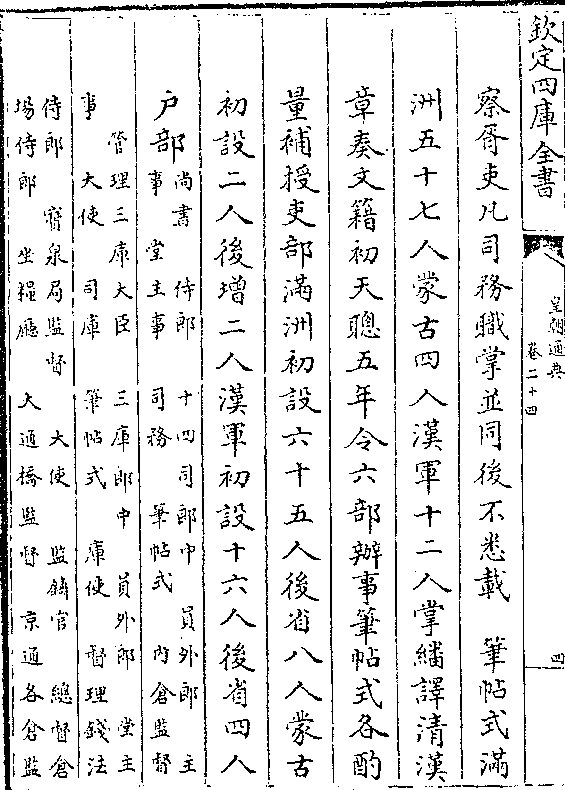 欽定四庫全書
皇朝通典
卷二十四
四
察胥吏凡司務職掌並同後不悉載　筆帖式滿
洲五十七人蒙古四人漢軍十二人掌繙譯清漢
章奏文籍初天聰五年令六部辦事筆帖式各酌
量補授吏部滿洲初設六十五人後省八人蒙古
初設二人後增二人漢軍初設十六人後省四人
户部
尚書　侍郎　十四司郎中　員外郎　主
事　堂主事　司務　筆帖式　内倉監督
管理三庫大臣　三庫郎中　員外郎　堂主
事　大使　司庫　筆帖式　庫使　督理錢法
侍郎　寶泉局監督　大使　監鑄官　總督倉
場侍郎　坐糧廳　大通橋監督　京通各倉監